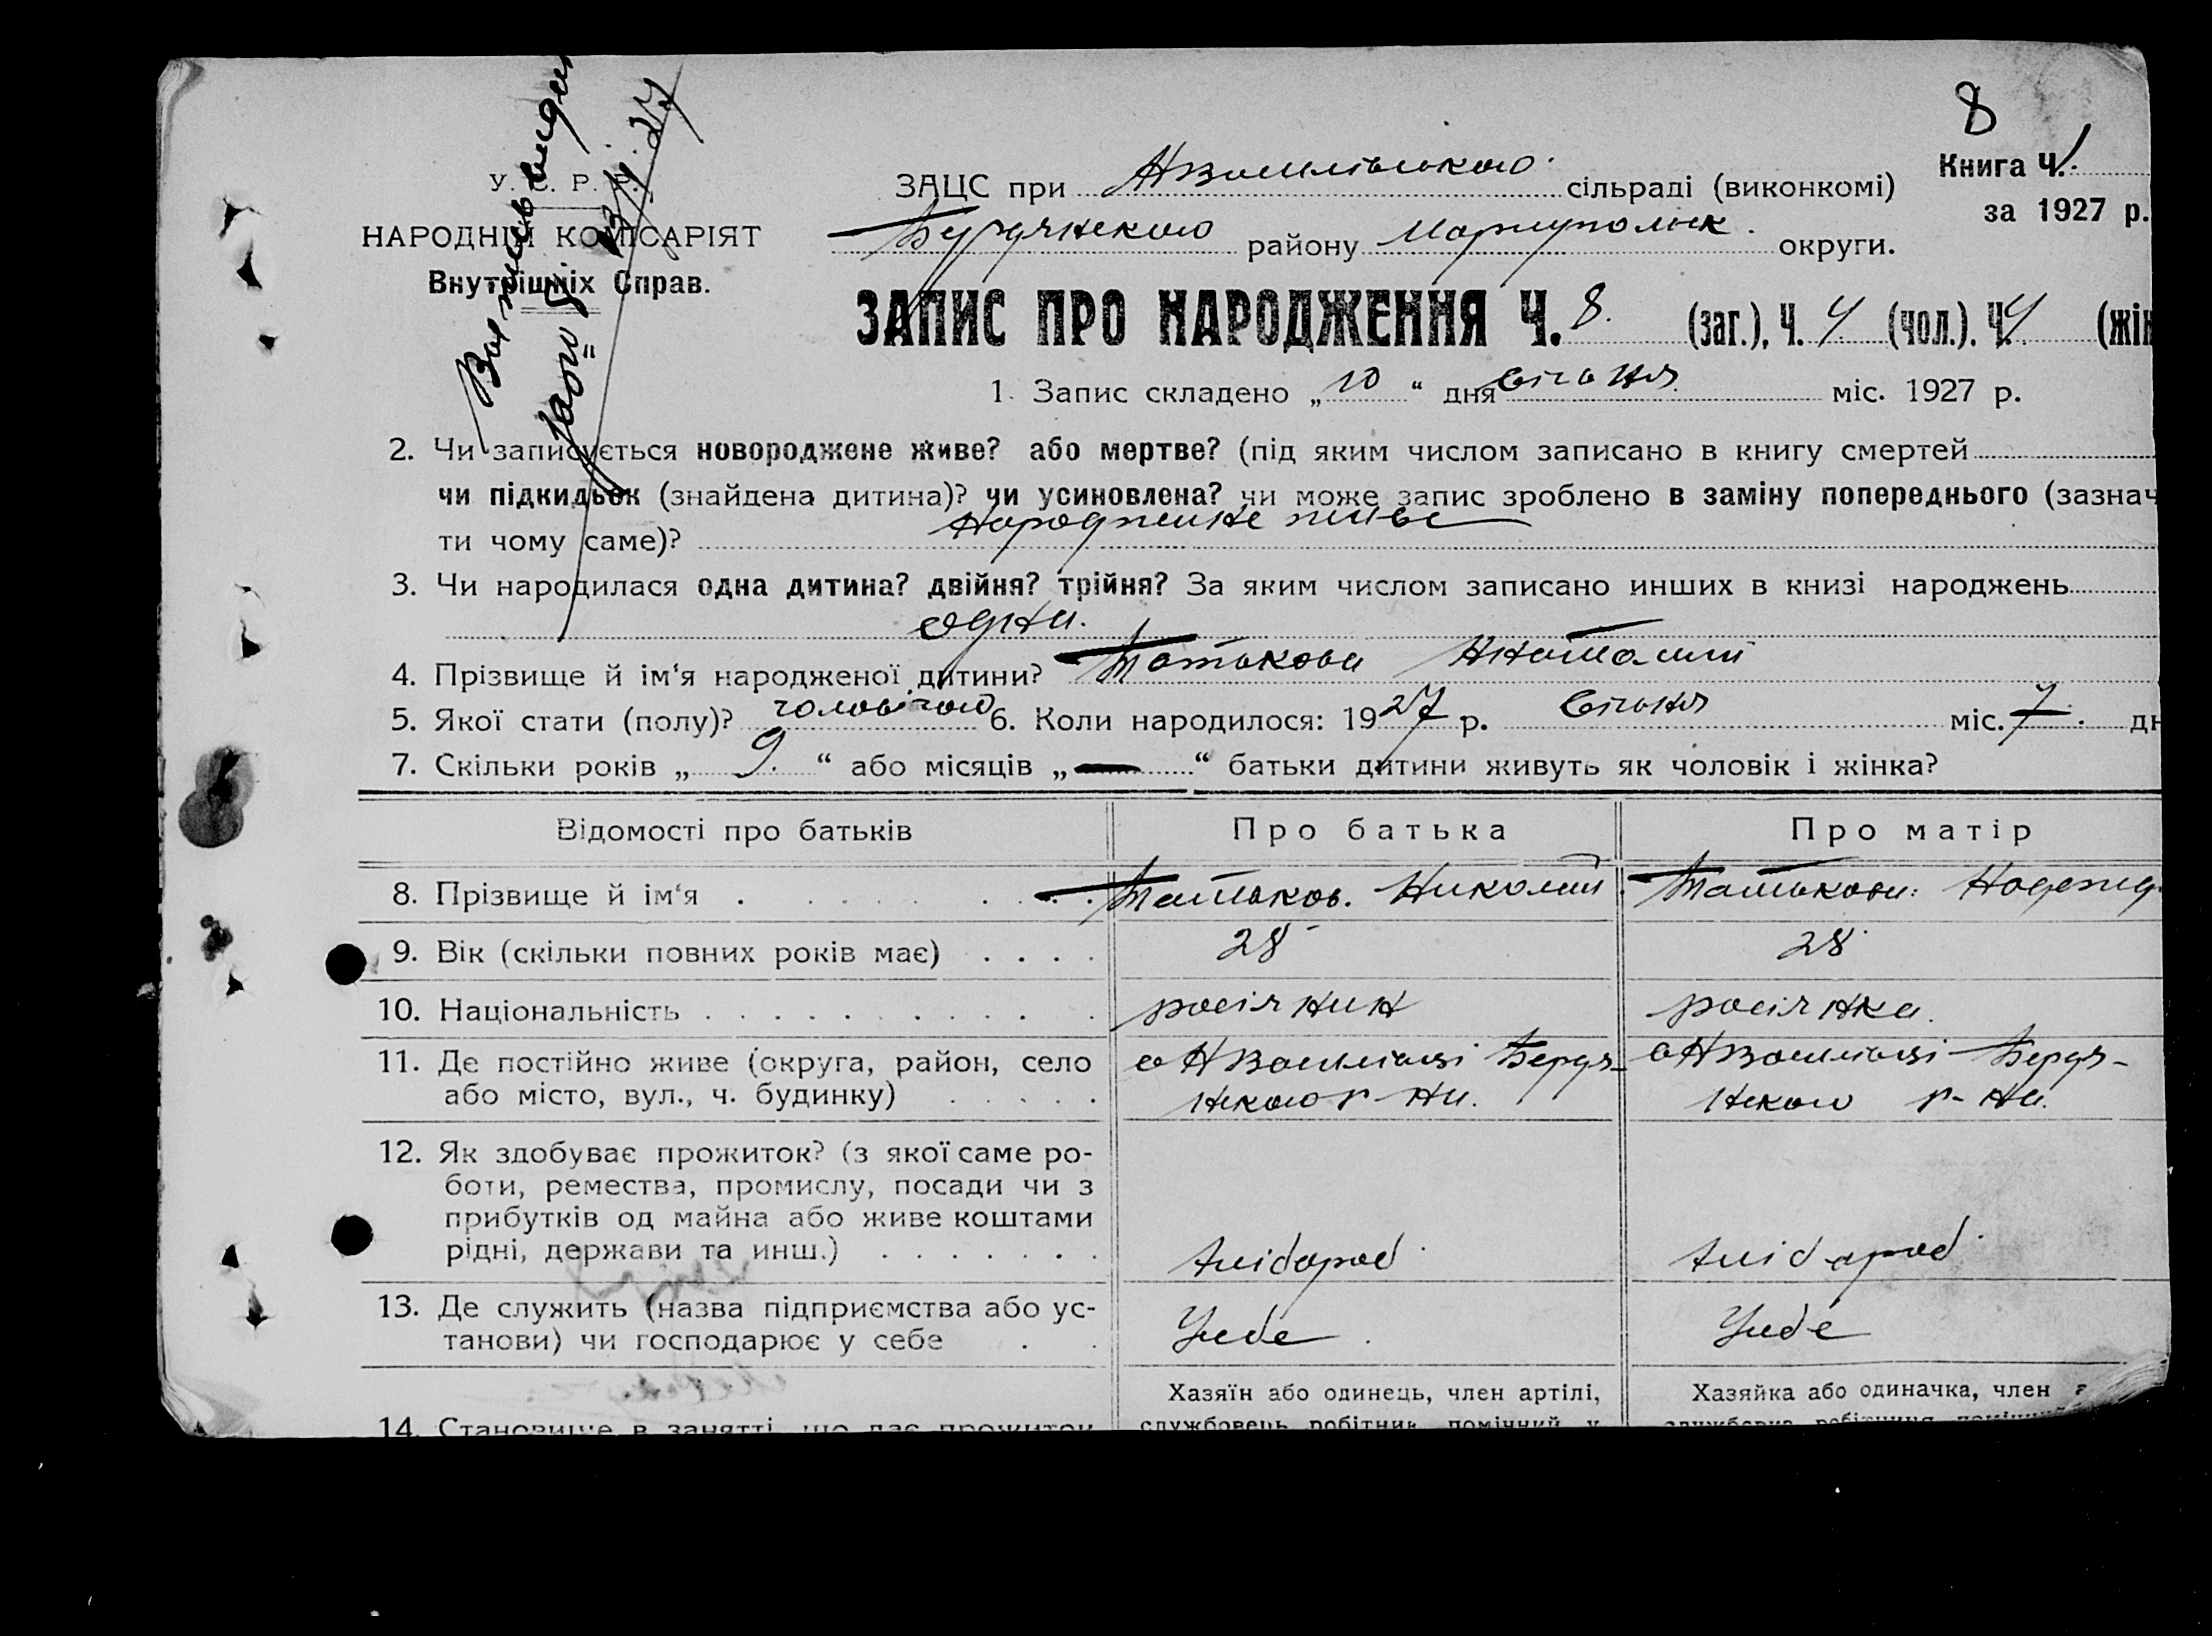 8
Книга Ч. 1
за 1927 р.
У. С. Р. Р.
НАРОДНІЙ КОМІСАРІЯТ
Внутрішніх Справ.
ЗАЦС при сільраді (виконкомі)
Бердянского району Мариупольск. округи.
ЗАПИС ПРО НАРОДЖЕННЯ Ч. 8. (заг.), Ч. 4 (чол.). Ч. 4 (жін
1. Запис складено „ 10 “ дня Січня міс. 1927 р.
2. Чи записується новороджене живе? або мертве? (під яким числом записано в книгу смертей
чи підкидьок (знайдена дитина)? чи усиновлена? чи може запис зроблено в заміну попереднього (зазнач
ти чому саме)? Народжене живе
3. Чи народилася одна дитина? двійня? трійня? За яким числом записано инших в книзі народжень
одна.
4. Прізвище й ім‘я народженої дитини?
5. Якої стати (полу)? чоловічого 6. Коли народилося: 1927 р. Січня міс. 7. дн
7. Скільки років „ 9. “ або місяців „ — “ батьки дитини живуть як чоловік і жінка?
Відомості про батьків Про батька Про матір
8. Прізвище й ім‘я Татьков. Николай Татькова. Надежд
9. Вік (скільки повних років має) 28 28
10. Національність росіянин росіянка.
11. Де постійно живе (округа, район, село Бердя- Бердя-
або місто, вул., ч. будинку) нского р-на. нского р-на.
12. Як здобуває прожиток? (з якої саме ро-
боти, ремества, промислу, посади чи з
прибутків од майна або живе коштами
рідні, держави та инш.) хлібороб. хлібороб.
13. Де служить (назва підприємства або ус-
танови) чи господарює у себе У себе. У себе
Хазяїн або одинець, член артілі, Хазяйка або одиначка, член
14. Становище в занятті, що дає прожиток службовець, робітник, помічний у